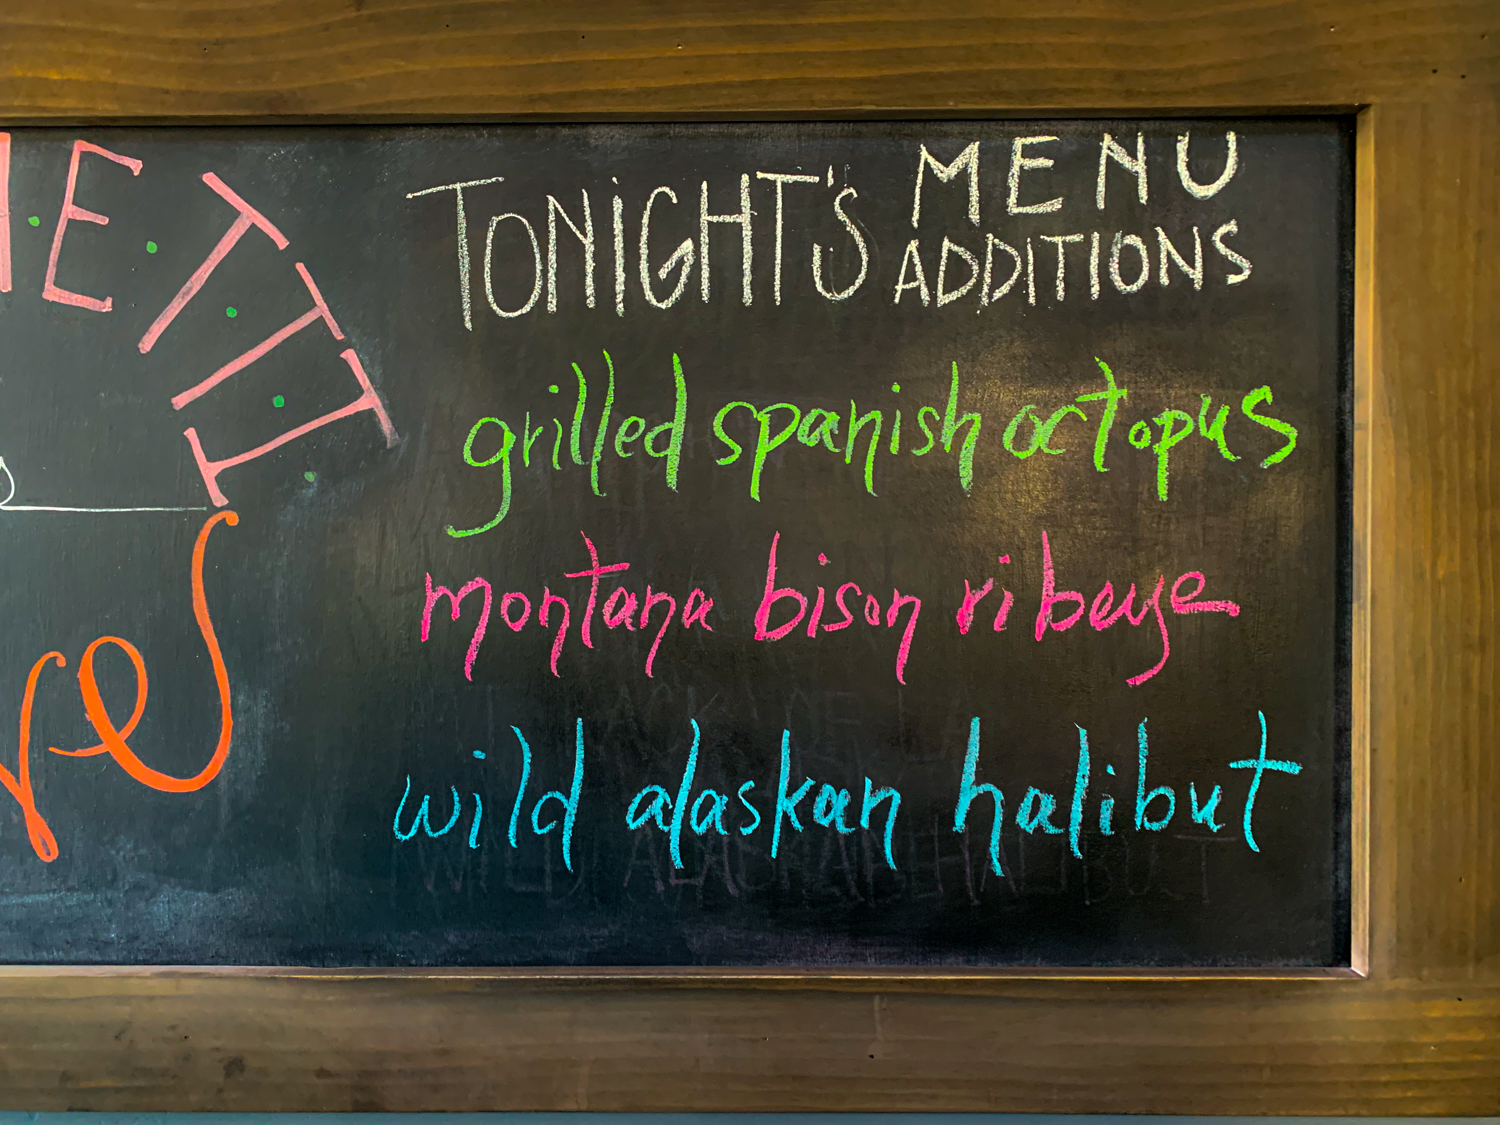 TONIGHT'S MENU ADDITIONS
grilled spanish octopus
montana bison ribeye
wild alaskan halibut